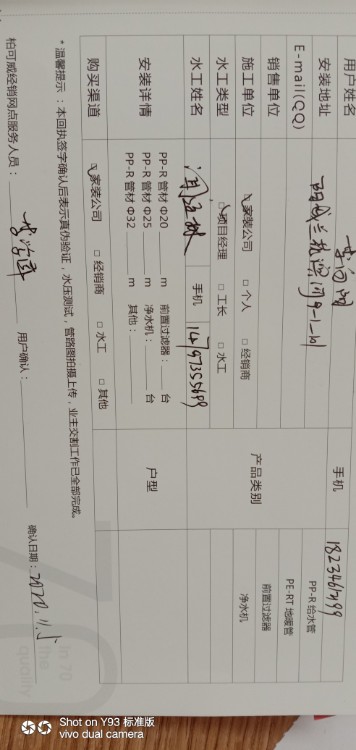 用户姓名 手机
安装地址 9-1-101 PP-R 给水管
E-mail(QQ) PE-RT 地暖管
销售单位 前置过滤器
施工单位 家装公司 □ 个人 □ 经销商 产品类别 净水机
水工类型 项目经理 □ 工长 □ 水工
水工姓名 手机
安装详情 PP-R 管材 Φ20 ____ m 前置过滤器：____ 台 户型
PP-R 管材 Φ25 ____ m 净水机：____ 台
PP-R 管材 Φ32 ____ m 其他：____
购买渠道 家装公司 □ 经销商 □ 水工 □ 其他
* 温馨提示：本回执签字确认后表示真伪验证，水压测试，管路图拍摄上传，业主交割工作已全部完成。
柏可威经销网点服务人员： 用户确认： 确认日期：2020.11.5
in 70
the
quality
Shot on Y93 标准版
vivo dual camera